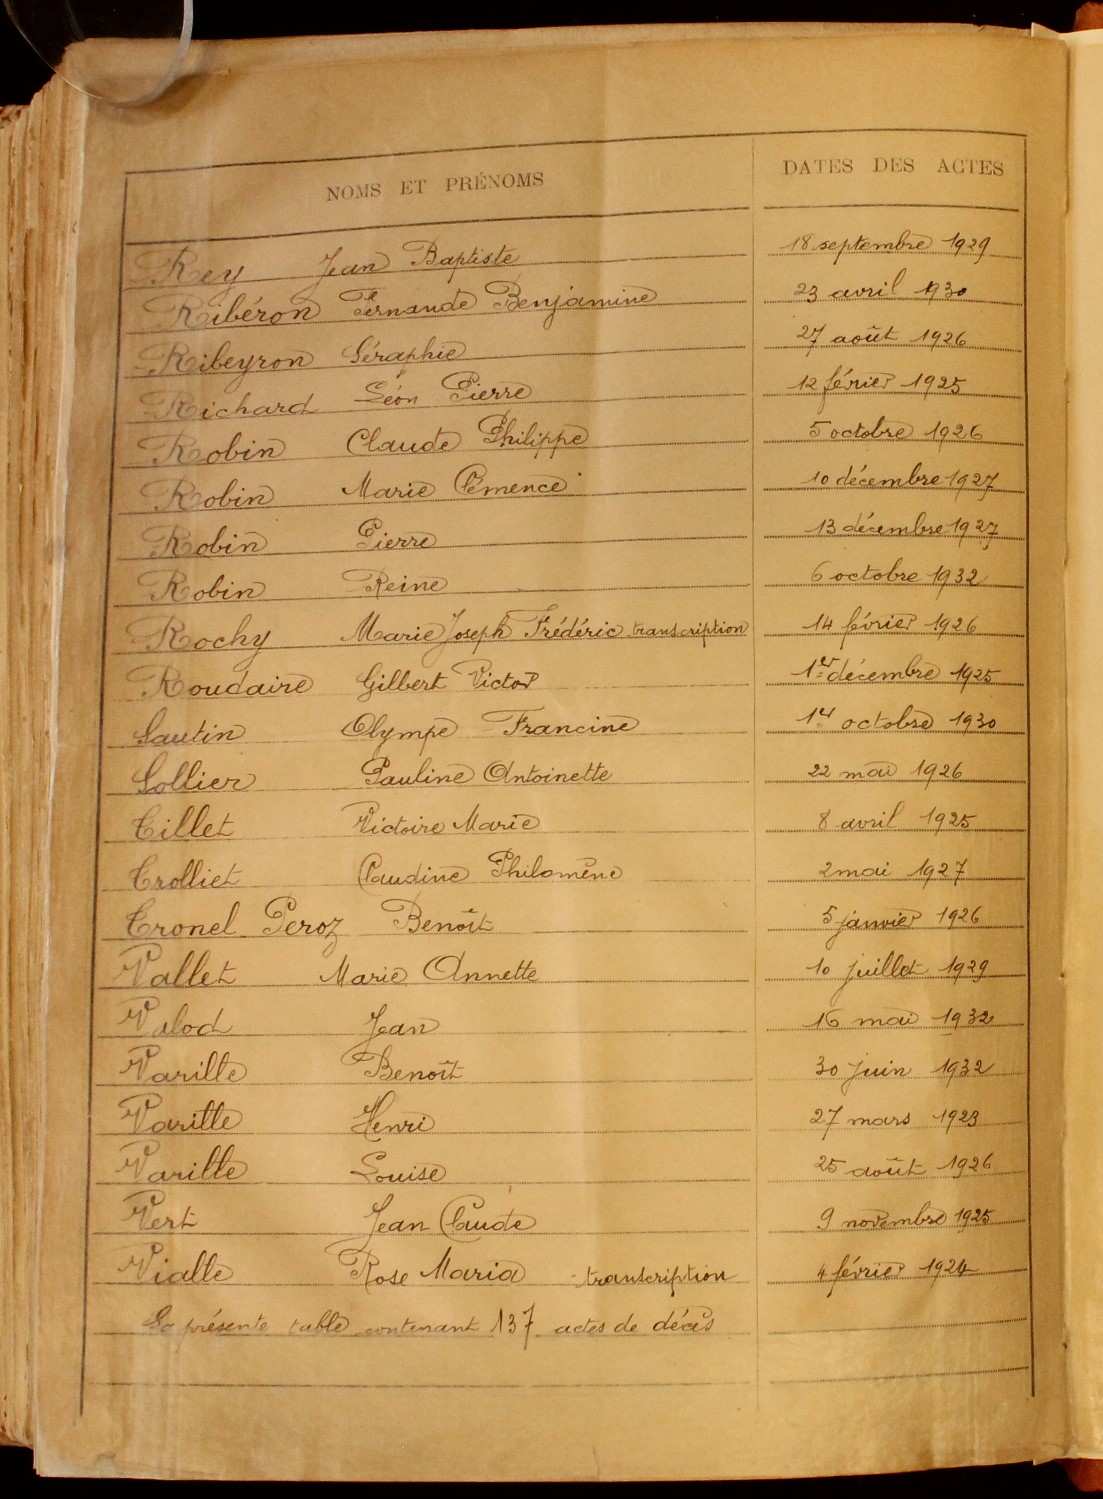 NOMS ET PRÉNOMS DATES DES ACTES
Rey Jean Baptiste 18 septembre 1929
Ribéron Fernande Benjamine 23 avril 1930
Ribeyron Séraphie 27 août 1926
Richard Léon Pierre 12 février 1925
Robin Claude Philippe 5 octobre 1926
Robin Marie Clémence 10 décembre 1927
Robin Pierre 13 décembre 1927
Robin Reine 6 octobre 1932
Rochy Marie Joseph Frédéric transcription 14 février 1926
Roudaire Gilbert Victor 1er décembre 1925
Sautin Olympe Francine 14 octobre 1930
Sollier Pauline Antoinette 22 mai 1926
Tillet Victoire Marie 8 avril 1925
Trolliet Claudine Philomène 2 mai 1927
Tronel Peroz Benoît 5 janvier 1926
Vallet Marie Annette 10 juillet 1929
Valod Jean 16 mai 1932
Varille Benoît 30 juin 1932
Varille Henri 27 mars 1923
Varille Louise 25 août 1926
Vert Jean Claude 9 novembre 1925
Vialle Rose Maria transcription 4 février 1924
La présente table contenant 137 actes de décès